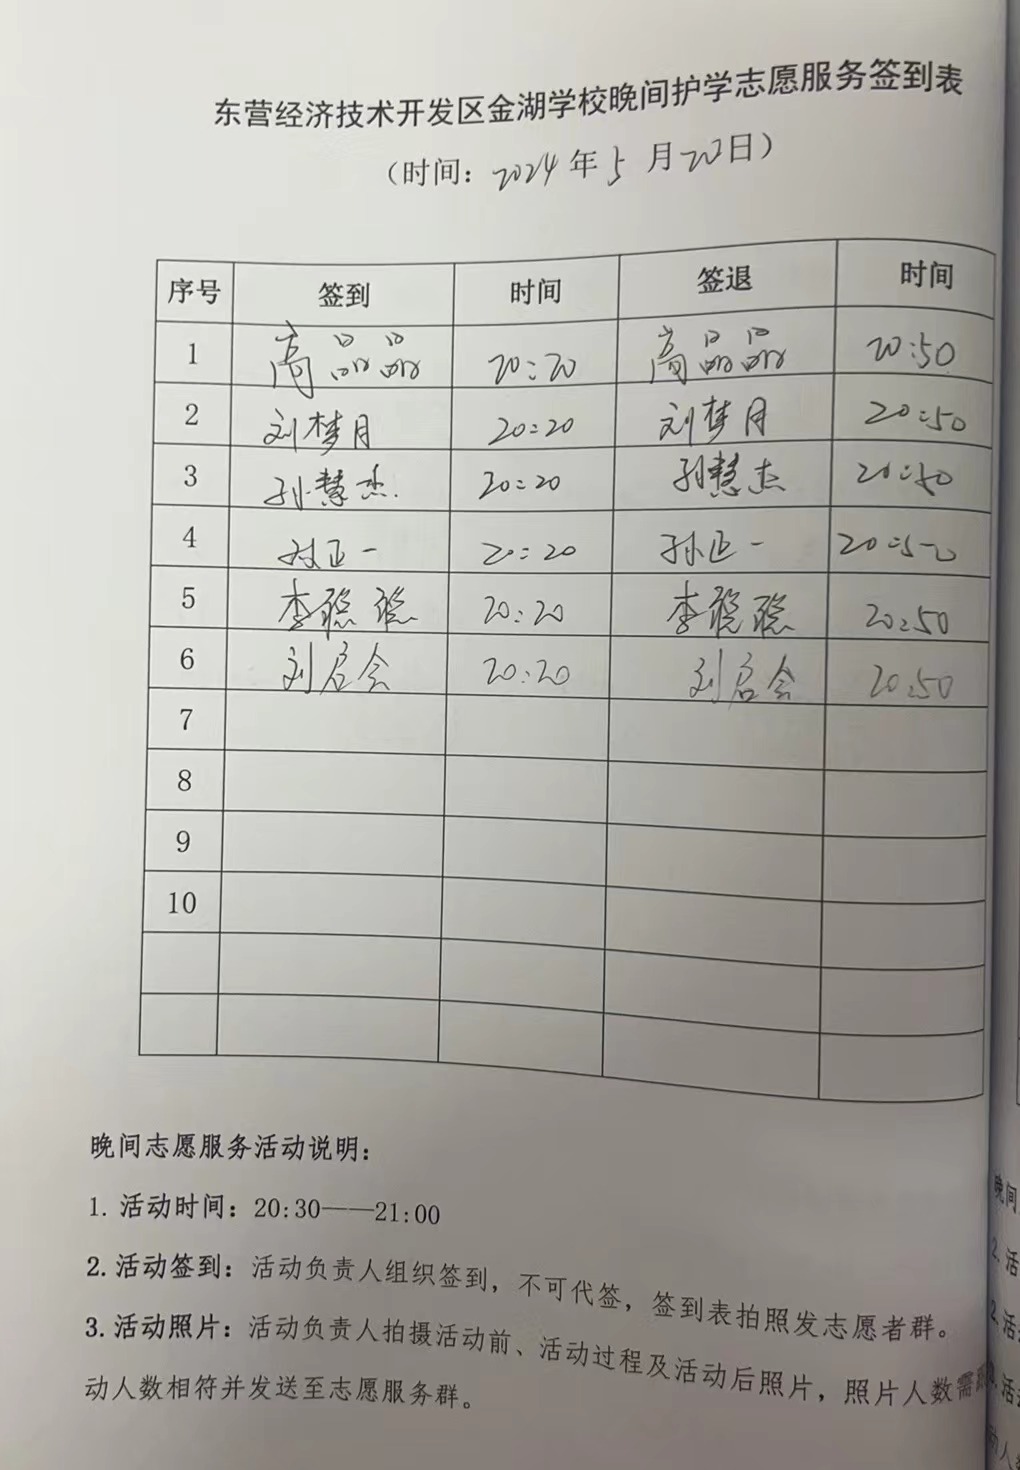 东营经济技术开发区金湖学校晚间护学志愿服务签到表
（时间：2024年5月20日）
序号 签到 时间 签退 时间
1 高晶晶 20:20 高晶晶 20:50
2 刘梦月 20:20 刘梦月 20:50
3 孙慧杰 20:20 孙慧杰 20:50
4 孙正一 20:20 孙正一 20:50
5 李聪聪 20:20 李聪聪 20:50
6 刘启会 20:20 刘启会 20:50
7
8
9
10
晚间志愿服务活动说明：
1. 活动时间：20:30——21:00
2. 活动签到：活动负责人组织签到，不可代签，签到表拍照发志愿者群。
3. 活动照片：活动负责人拍摄活动前、活动过程及活动后照片，照片人数需
动人数相符并发送至志愿服务群。
晚间
2. 活